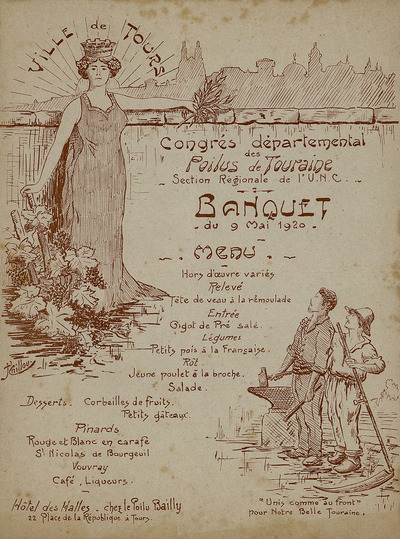 VILLE de TOURS
Congrès départemental
des
Poilus de Touraine
Section Régionale de l'U.N.C.
BANQUET
du 9 Mai 1920
MENU
Hors d'œuvre variés
Relevé
Tête de veau à la rémoulade
Entrée
Gigot de Pré salé.
Légumes
Petits pois à la Française.
Rôt
Jeune poulet à la broche.
Salade.
Desserts. Corbeilles de fruits.
Petits gâteaux.
Pinards
Rouge et Blanc en carafe
St Nicolas de Bourgeuil
Vouvray
Café, Liqueurs.
Hôtel des Halles. chez le Poilu Bailly
22 Place de la République à Tours.
"Unis comme au front"
pour Notre Belle Touraine.